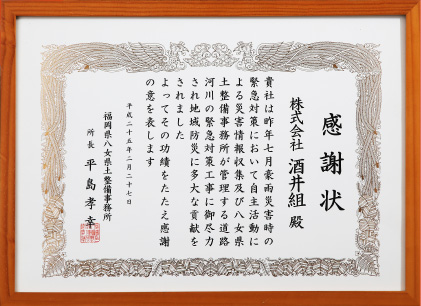 感謝状
株式会社 酒井組 殿
貴社は昨年七月豪雨災害時の
緊急対策において自主活動に
よる災害情報収集及び八女県
土整備事務所が管理する道路
河川の緊急対策工事に御尽力
され地域防災に多大な貢献を
されました
よってその功績をたたえ感謝
の意を表します
平成二十五年二月二十七日
福岡県八女県土整備事務所
所長 平島孝幸